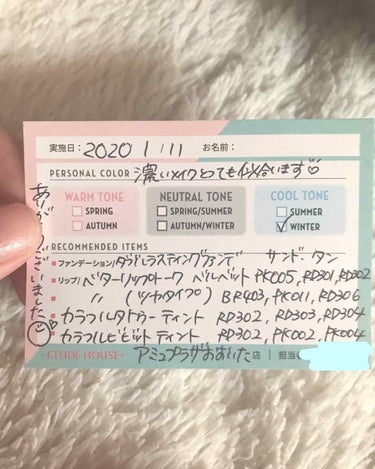 実施日： 2020 1/11 お名前：
PERSONAL COLOR 濃いメイクとても似合います
WARM TONE
SPRING
AUTUMN
NEUTRAL TONE
SPRING/SUMMER
AUTUMN/WINTER
COOL TONE
SUMMER
WINTER
RECOMMENDED ITEMS
ファンデーション/ダブルラスティングファンデ サンド・タン
リップ/ベターリップトーク ベルベット PK005, RD301, RD302
〃 (ツヤタイプ) BR403, PK011, RD306
カラフルタトゥーティント RD302, RD303, RD304
カラフルビビットティント RD302, PK002, PK004
ETUDE HOUSE アミュプラザおおいた 店 | 担当
ありがとうございました